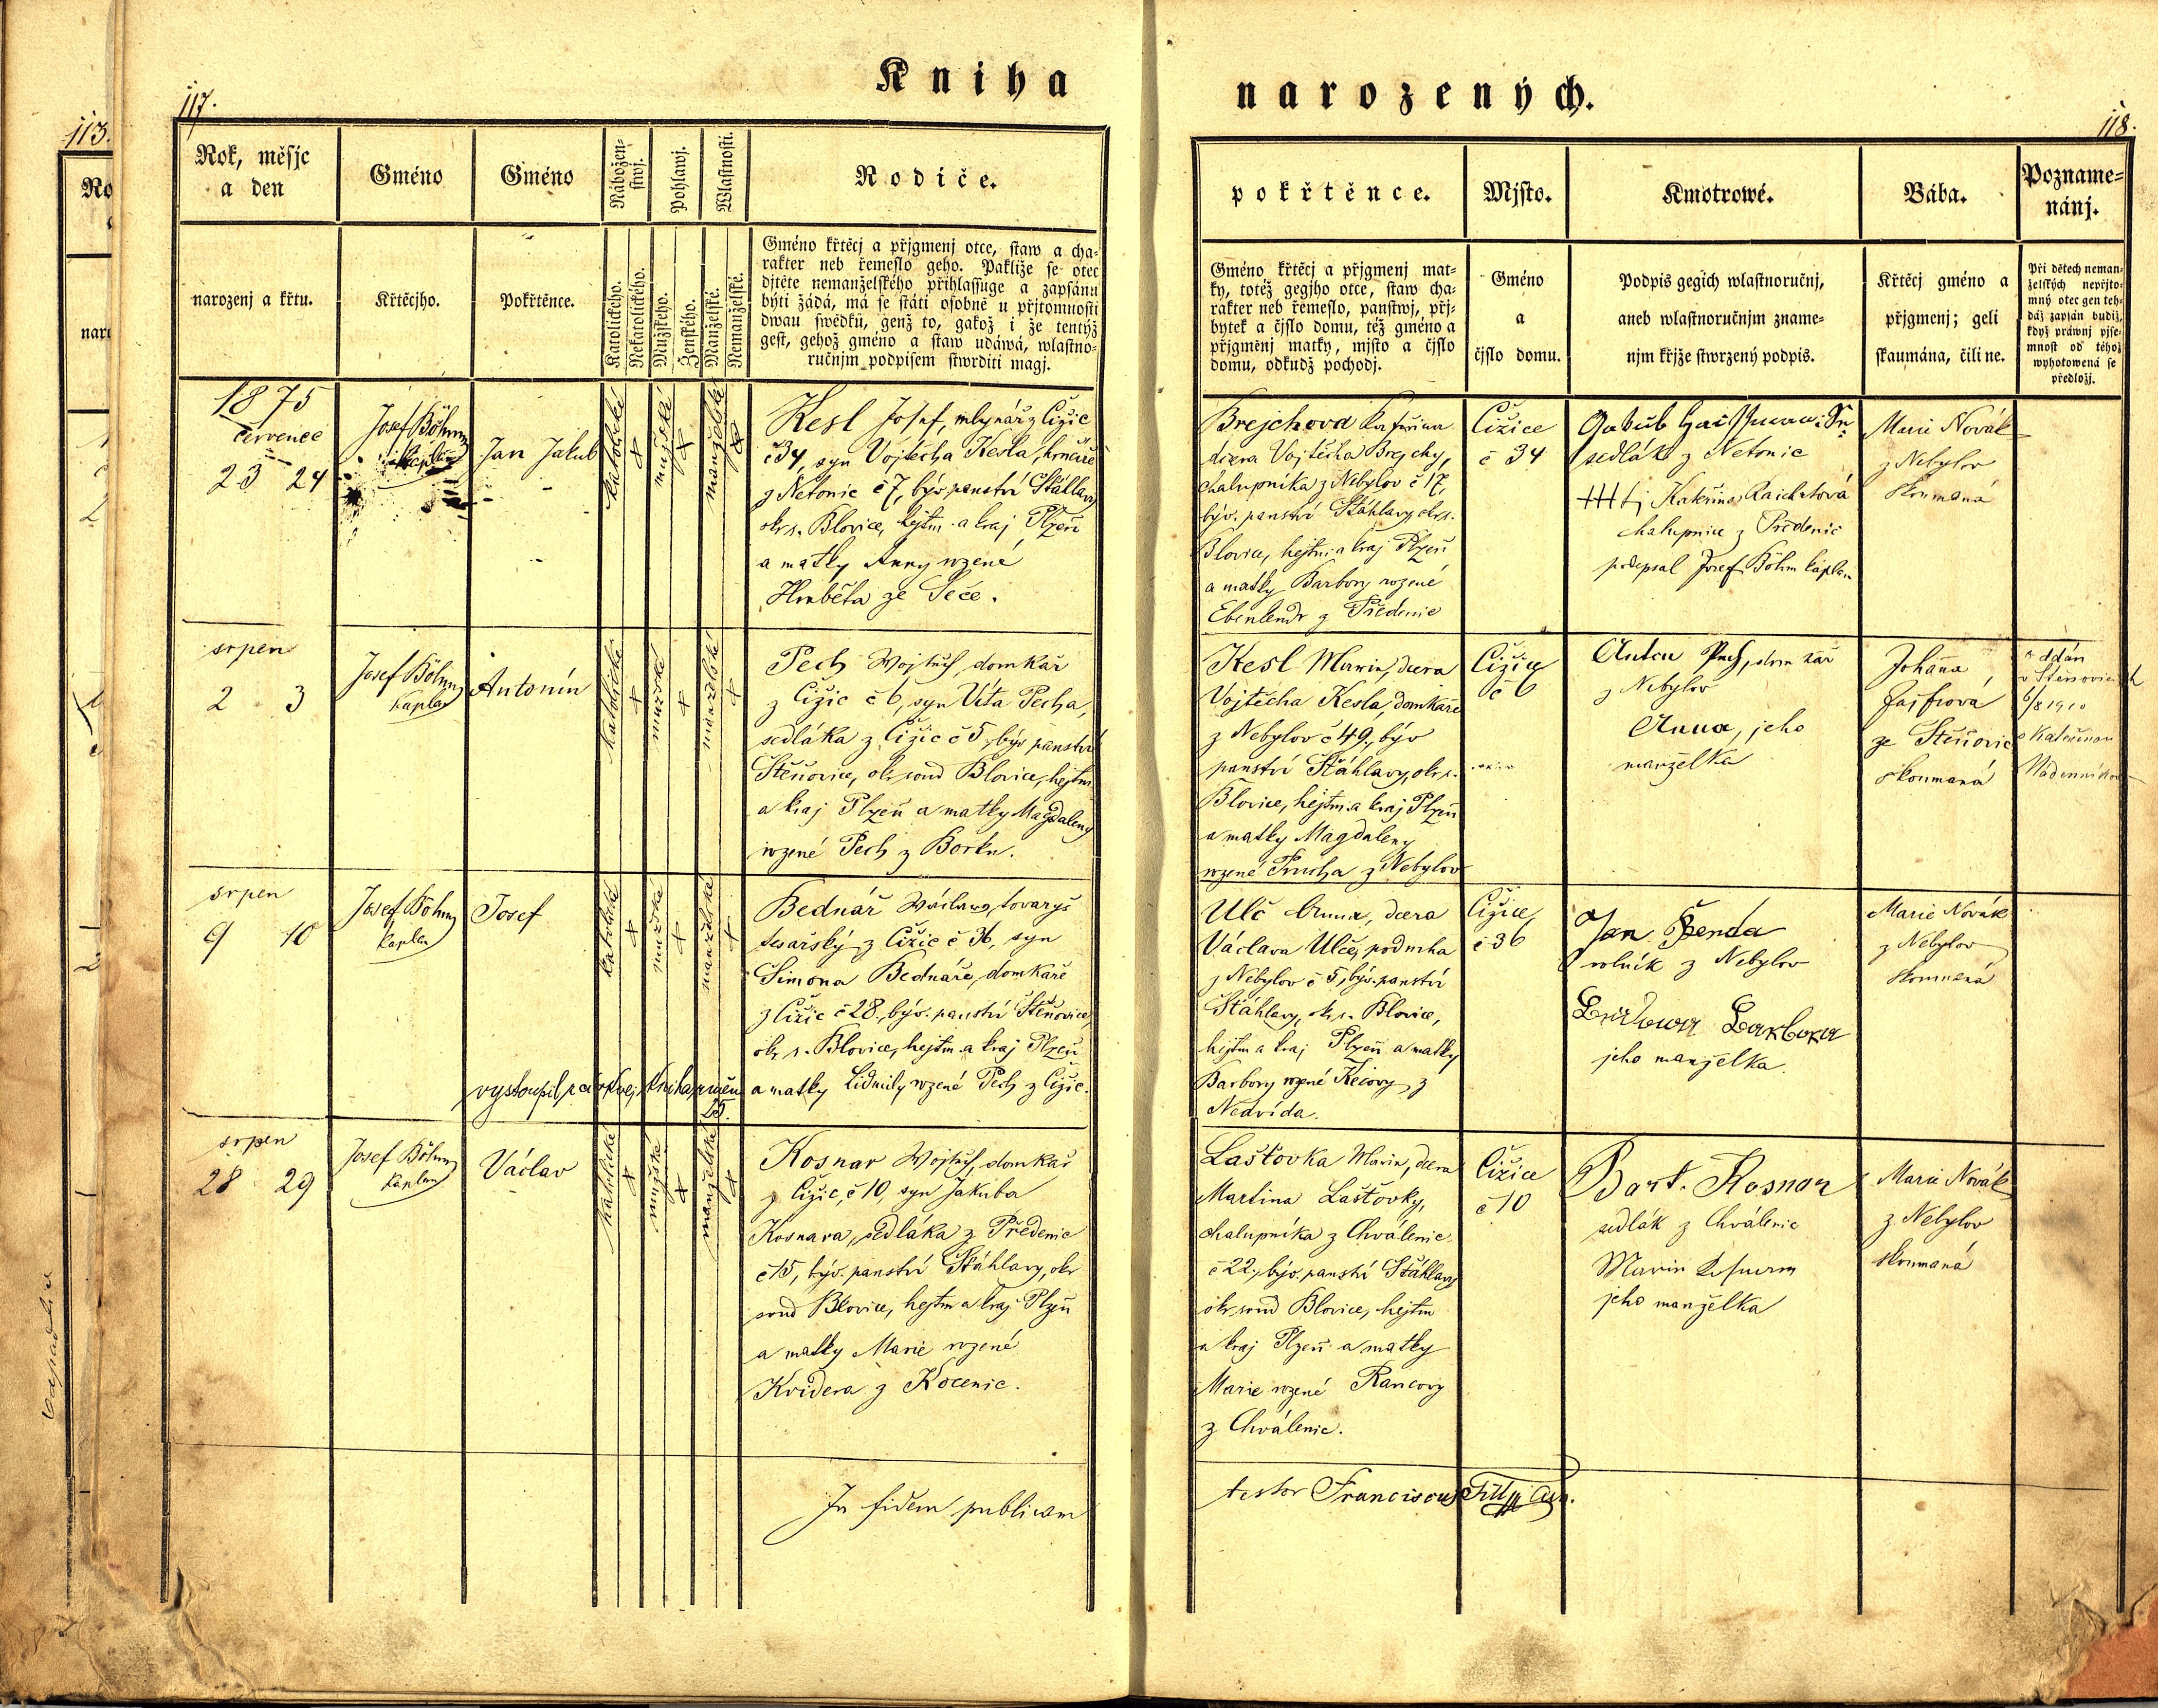 Kniha
narozených.
117.
118.
113.
Rok, měsjc
a den
Gméno
Gméno
Nábožen-
stwj.
Pohlawj.
Wlastnosti.
Rodiče.
narozenj a křtu.
Křtěcjho.
Pokřtěnce.
Katolického.
Nekatolického.
Mužského.
Ženského.
Manželské.
Nemanželské.
Gméno křtěcj a přjgmenj otce, staw a cha-
rakter neb řemeslo geho. Pakliže se otec
djtěte nemanželského přihlassuge a zapsánu
býti žádá, má se státi osobně u přjtomnosti
dwau swědků, genž to, gakož i že tentýž
gest, gehož gméno a staw udáwá, wlastno-
ručnjm podpisem stwrditi magj.
1875
červenec
23 24
Josef Böhm
kaplan
Jan Jakub
katolické
mužské
manželské
Kesl Josef, mlynář z Čižic
č 34, syn Vojtěcha Kesla,
z Netonic č 7, býv. panství Štáhlavy
okr. s. Blovice, hejtm. a kraj Plzeň
a matky Anny rozené
ze Seče.
srpen
2 3
Josef Böhm
kaplan
Antonín
katolické
mužské
manželské
Pech Wojtěch, domkář
z Čižic č 6, syn Víta Pecha,
sedláka z Čižic č 5, býv panství
Štěnovice, okr. soud Blovice, hejtm
a kraj Plzeň a matky Magdaleny
rozené Pech z Borku.
srpen
9 10
Josef Böhm
kaplan
Josef
katolické
mužské
manželské
Bednář Wáclaw, tovaryš
tesařský z Čižic č 36, syn
Šimona Bednáře, domkáře
z Čižic č 28, býv. panství Štěnovice,
okr. s. Blovice, hejtm. a kraj Plzeň
a matky Lidmily rozené Pech z Čižic.
vystoupil
srpen
28 29
Josef Böhm
kaplan
Václav
katolické
mužské
manželské
Kosnar Wojtěch, domkář
z Čižic, č 10, syn Jakuba
Kosnara, sedláka z Předenic
č 15, býv. panství Štáhlavy, okr
soud Blovice, hejtm a kraj Plzeň
a matky Marie rozené
Kvidera z Kocenic.
In fidem publicam
pokřtěnce.
Mjsto.
Kmotrowé.
Bába.
Pozname-
nánj.
Gméno křtěcj a přjgmenj mat-
ky, totéž gegjho otce, staw cha-
rakter neb řemeslo, panstwj, přj-
bytek a čjslo domu, též gméno a
přjgměnj matky, mjsto a čjslo
domu, odkudž pochodj.
Gméno
a
čjslo domu.
Podpis gegich wlastnoručnj,
aneb wlastnoručnjm zname-
njm křjže stwrzený podpis.
Křtěcj gméno a
přjgmenj; geli
skaumána, čili ne.
Při dětech neman-
želských nepřjto-
mný otec gen teh-
dáž zapsán budiž,
když práwnj pjse-
mnost od téhož
wyhotowená se
předložj.
Brejchova Kateřina
dcera Vojtěcha Brejchy,
chalupníka z Nebylov č 17,
býv. panství Štáhlavy, okr. s.
Blovice, hejtm. a kraj Plzeň
a matky Barbory rozené
Ebenlendr z Předenic
Čižice
č 34
Jakub
sedlák z Netonic
+++ tj Kateřina Raichrtová
chalupnice z Předenic
podepsal Josef Böhm kaplan
Marie Novák
z Nebylov
skoumaná
Kesl Marie, dcera
Vojtěcha Kesla, domkáře
z Nebylov č 49, býv
panství Štáhlavy, okr. s.
Blovice, hejtm. a kraj Plzeň
a matky Magdaleny
rozené Prusha z Nebylov
Čižice
č 6
Anton Pech, domkář
z Nebylov
Anna, jeho
manželka
Johana
ze Štěnovic
skoumaná
oddán
v Štěnovicích
6/8 1910
s Kateřinou
Ulč Anna, dcera
Václava Ulče, podruha
z Nebylov č 5, býv. panství
Štáhlavy, okr. s. Blovice,
hejtm a kraj Plzeň a matky
Barbory rozené
Čižice,
č 36
Jan Benda
rolník z Nebylov
Barbora
jeho manželka.
Marie Novák
z Nebylov
skoumaná
Lašťovka Marie, dcera
Martina Lašťovky,
chalupníka z Chválenic
č 22, býv. panství Štáhlavy
okr. soud Blovice, hejtm
a kraj Plzeň a matky
Marie rozené Rancovy
z Chválenic.
Čižice
č 10
Bart. Kosnar
sedlák z Chválenic
Marie
jeho manželka
Marie Novák
z Nebylov
skoumaná
testor Franciscus